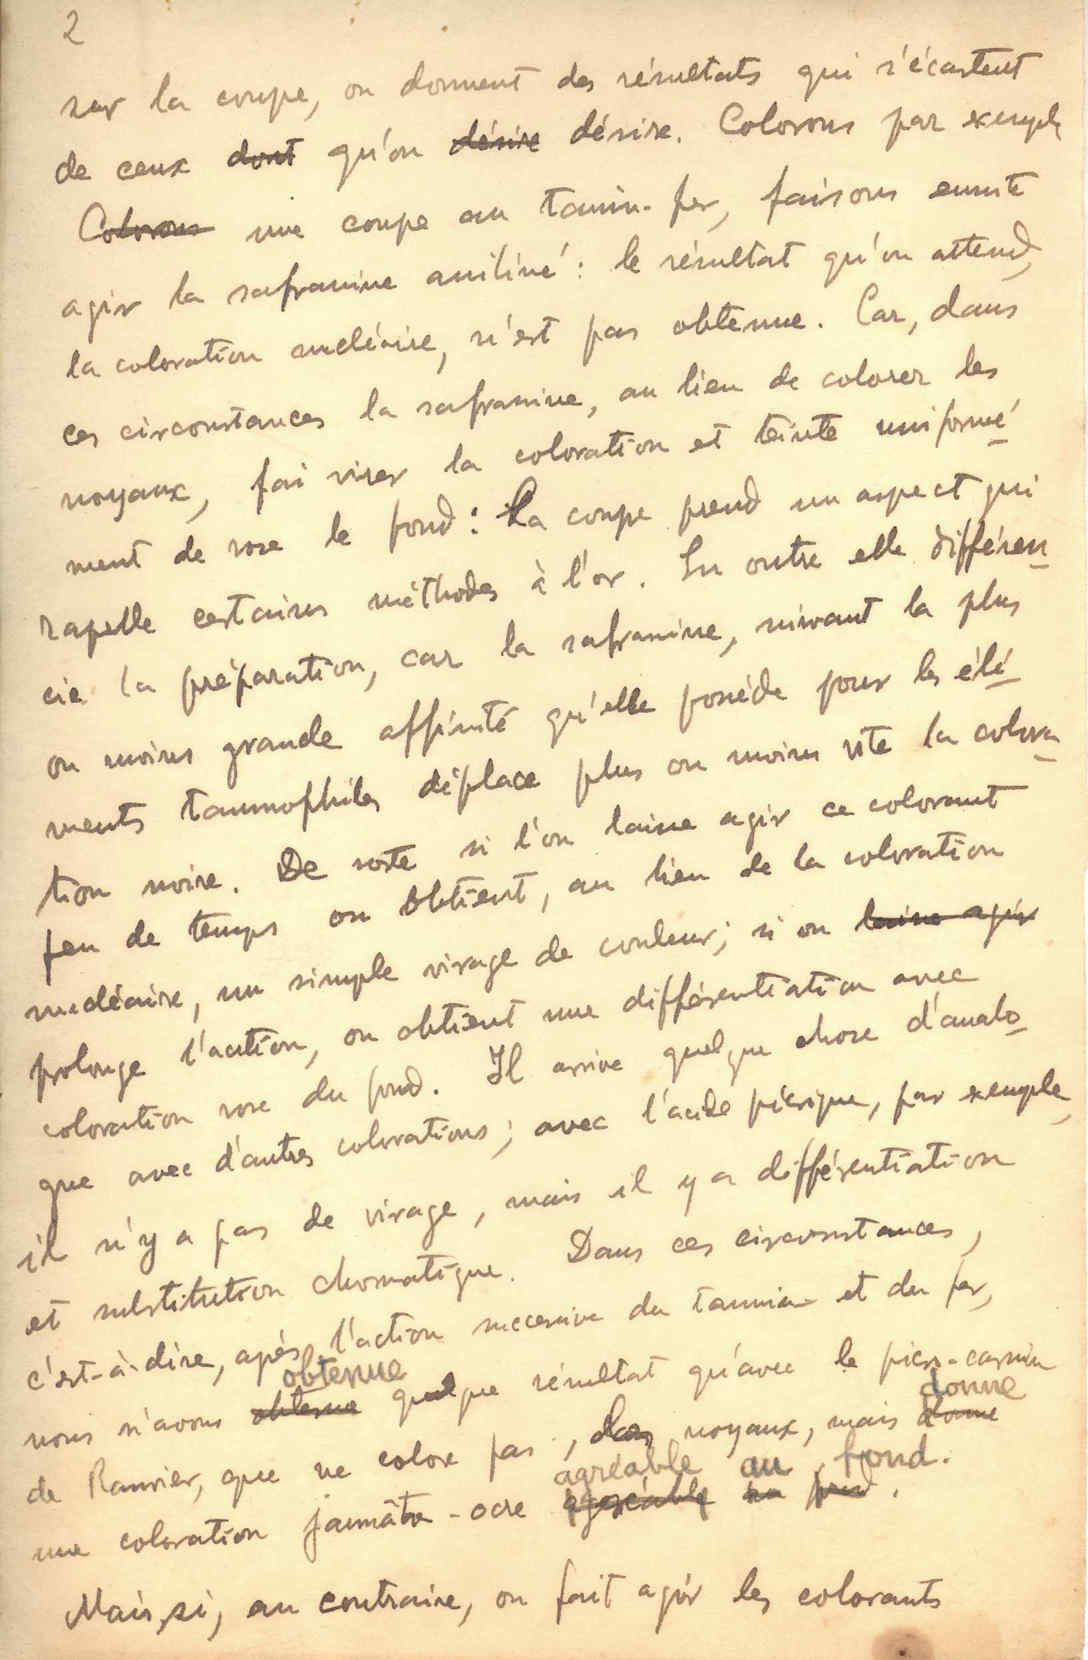 2
sur la coupe, on donnent des résultats qui s'écartent
de ceux dont qu'on désire désire. Colorons par exemple
Colorons une coupe au tanin-fer, faisons ensuite
agir la safranine aniliné: le résultat qu'on attend,
la coloration nucléaire, n'est pas obtenue. Car, dans
ces circonstances la safranine, au lieu de colorer les
noyaux, fai virer la coloration et teinte uniformé
ment de rose le fond: La coupe prend un aspect qui
rapelle certains méthodes à l'or. En outre elle différen
cie la préparation, car la safranine, suivant la plus
ou moins grande affinité qu'elle possède pour les élé
ments tannophiles déplace plus ou moins vite la colora
tion noire. De sorte si l'on laisse agir ce colorant
peu de temps on obtient, au lieu de la coloration
nucléaire, un simple virage de couleur; si on laisse agir
prolonge l'action, on obtient une différentiation avec
coloration rose du fond. Il arrive quelque chose d'analo
gue avec d'autres colorations; avec l'acide picrique, par exemple,
il n'y a pas de virage, mais il y a différentiation
et substitution chromatique. Dans ces circonstances,
c'est-à-dire, après l'action successive du tannin et du fer,
obtenue
nous n'avons obtenue quelque résultat qu'avec le picro-carmin
donne
de Ranvier, que ne colore pas, les noyaux, mais donne
agréable au fond.
une coloration jaunâtre-ocre agréable au fond.
Mais, si, au contraire, on fait agir les colorants